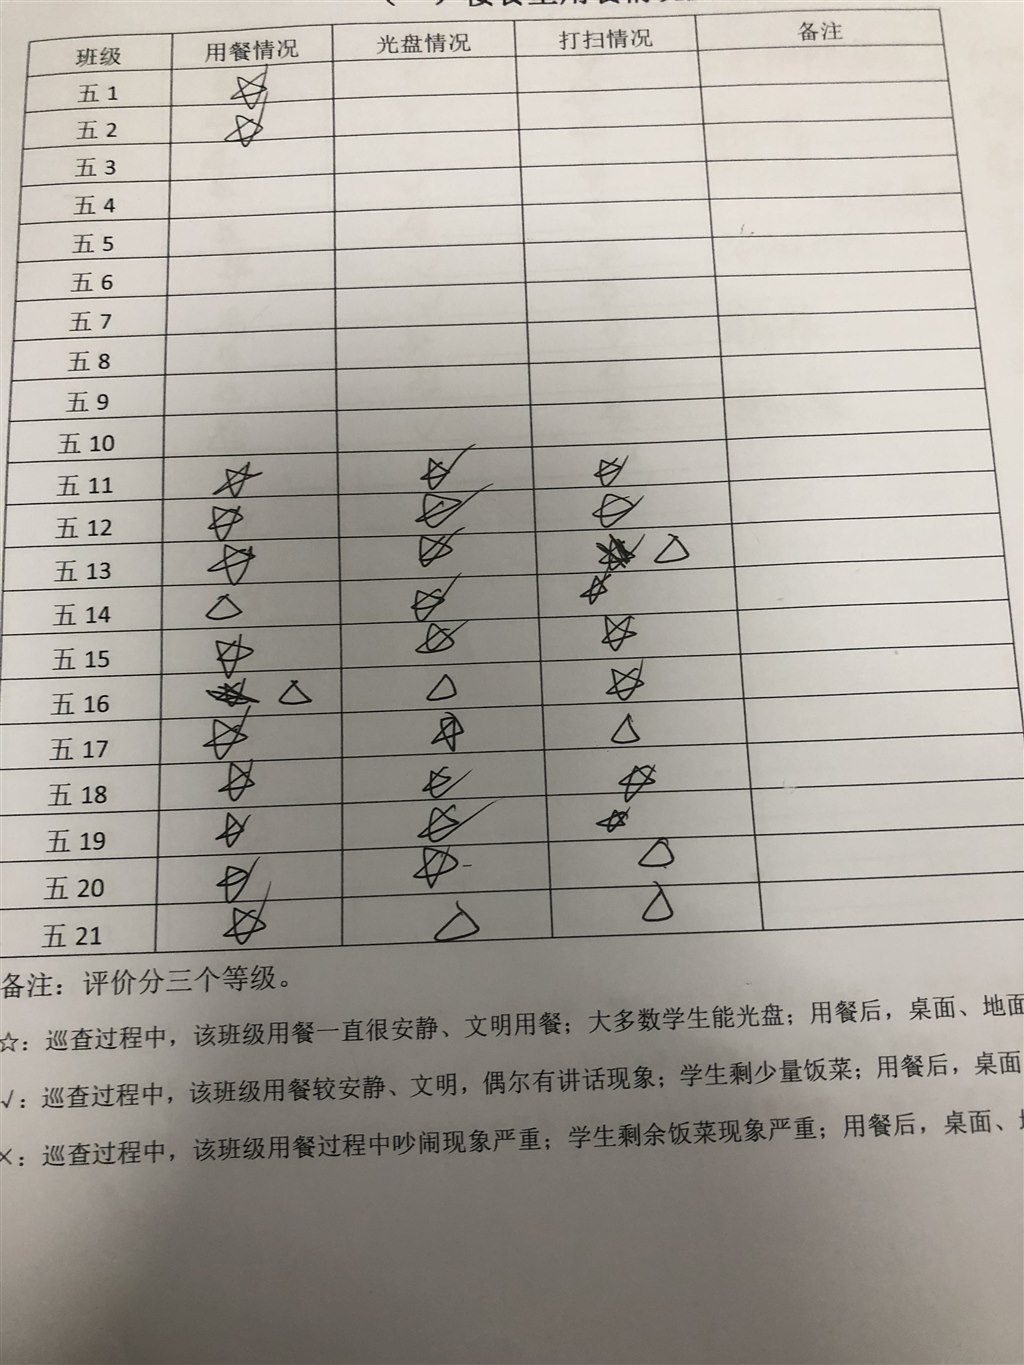 班级 用餐情况 光盘情况 打扫情况 备注
五 1 ☆
五 2 ☆
五 3
五 4
五 5
五 6
五 7
五 8
五 9
五 10
五 11 ☆ ☆ ☆
五 12 ☆ ☆ ☆
五 13 ☆ ☆ △
五 14 △ ☆ ☆
五 15 ☆ ☆ ☆
五 16 △ △ ☆
五 17 ☆ ☆ △
五 18 ☆ ☆ ☆
五 19 ☆ ☆ ☆
五 20 ☆ ☆ △
五 21 ☆ △ △
备注：评价分三个等级。
☆：巡查过程中，该班级用餐一直很安静、文明用餐；大多数学生能光盘；用餐后，桌面、地面
√：巡查过程中，该班级用餐较安静、文明，偶尔有讲话现象；学生剩少量饭菜；用餐后，桌面
×：巡查过程中，该班级用餐过程中吵闹现象严重；学生剩余饭菜现象严重；用餐后，桌面、